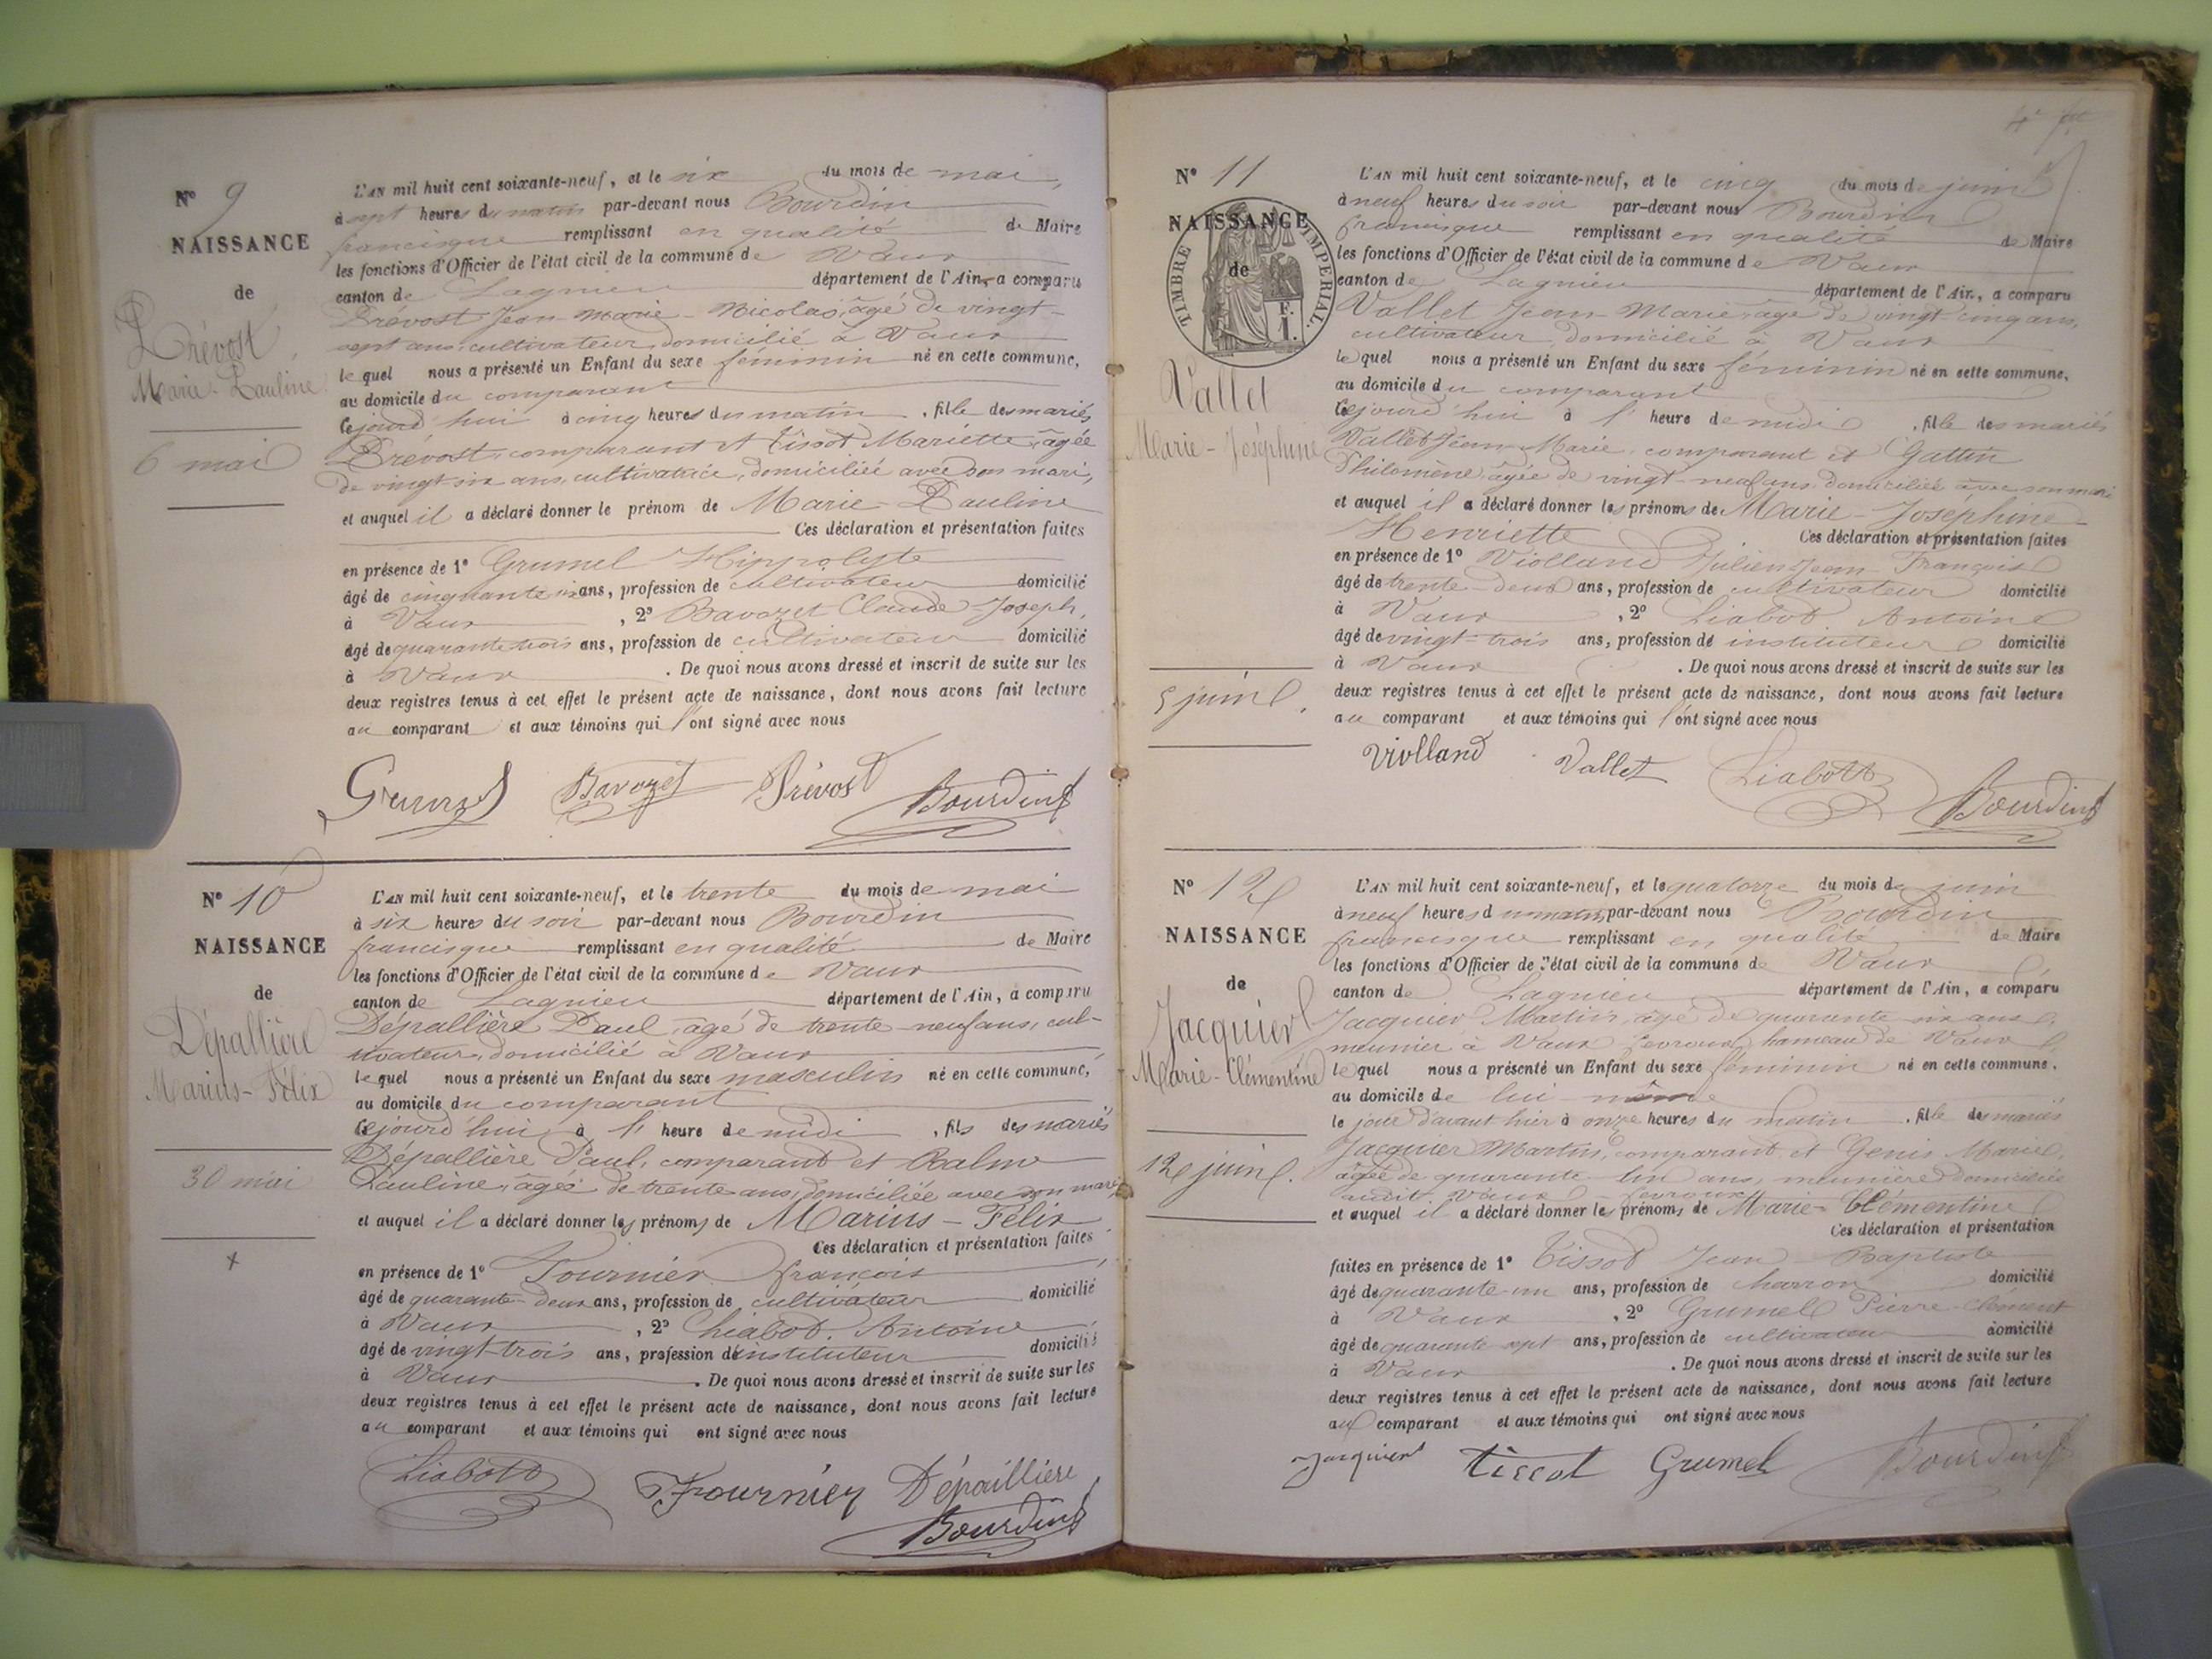 N° 9
NAISSANCE
de
Prévost
Marie-Pauline
6 mai
L'AN mil huit cent soixante-neuf, et le six du mois de mai,
à sept heures du matin par-devant nous Bourdin
francisque remplissant en qualité de Maire
les fonctions d'Officier de l'état civil de la commune de Vaux
canton de Lagnieu département de l'Ain, a comparu
Prévost Jean-Marie-Nicolas, âgé de vingt-
sept ans, cultivateur, domicilié à Vaux
lequel nous a présenté un Enfant du sexe féminin né en cette commune,
au domicile du comparant
Cejourd'hui à cinq heures du matin, fille des mariés
Prévost, comparant et Tissot Mariette, âgée
de vingt-six ans, cultivatrice, domiciliée avec son mari,
et auquel il a déclaré donner le prénom de Marie-Pauline
Ces déclaration et présentation faites
en présence de 1° Grumel Hippolyte
âgé de cinquante ans, profession de cultivateur domicilié
à Vaux, 2° Bavozet Claude-Joseph,
âgé de quarante trois ans, profession de cultivateur domicilié
à Vaux. De quoi nous avons dressé et inscrit de suite sur les
deux registres tenus à cet effet le présent acte de naissance, dont nous avons fait lecture
au comparant et aux témoins qui l'ont signé avec nous
Grumel Bavozet Prévost Bourdin f
N° 10
NAISSANCE
de
Dépallière
Marius-Félix
30 mai
x
L'AN mil huit cent soixante-neuf, et le trente du mois de mai
à six heures du soir par-devant nous Bourdin
francisque remplissant en qualité de Maire
les fonctions d'Officier de l'état civil de la commune de Vaux
canton de Lagnieu département de l'Ain, a comparu
Dépallière Paul, âgé de trente-neuf ans, cul-
tivateur, domicilié à Vaux
lequel nous a présenté un Enfant du sexe masculin né en cette commune,
au domicile du comparant
Cejourd'hui à 1 heure de midi, fils des mariés
Dépallière Paul, comparant et Balme
Pauline, âgée de trente ans, domiciliée avec son mari
et auquel il a déclaré donner les prénoms de Marius-Félix
Ces déclaration et présentation faites
en présence de 1° Fournier françois
âgé de quarante-deux ans, profession de cultivateur domicilié
à Vaux, 2° Liabot Antoine
âgé de vingt-trois ans, profession d'instituteur domicilié
à Vaux. De quoi nous avons dressé et inscrit de suite sur les
deux registres tenus à cet effet le présent acte de naissance, dont nous avons fait lecture
au comparant et aux témoins qui ont signé avec nous
Liabot Fournier Dépaillière
Bourdin f
N° 11
NAISSANCE
de
TIMBRE IMPÉRIAL
Vallet
Marie-Joséphine
5 juin.
L'AN mil huit cent soixante-neuf, et le cinq du mois de juin
à neuf heures du soir par-devant nous Bourdin
francisque remplissant en qualité de Maire
les fonctions d'Officier de l'état civil de la commune de Vaux
canton de Lagnieu département de l'Ain, a comparu
Vallet Jean-Marie, âgé de vingt-cinq ans,
cultivateur, domicilié à Vaux
lequel nous a présenté un Enfant du sexe féminin né en cette commune,
au domicile du comparant
Cejourd'hui à 1 heure de midi, fille des mariés
Vallet Jean-Marie, comparant et Gattin
Philomène, âgée de vingt-neuf ans, domiciliée avec son mari
et auquel il a déclaré donner les prénoms de Marie-Joséphine-
Henriette Ces déclaration et présentation faites
en présence de 1° Violland Julien Jean François
âgé de trente-deux ans, profession de cultivateur domicilié
à Vaux, 2° Liabot Antoine
âgé de vingt-trois ans, profession de instituteur domicilié
à Vaux. De quoi nous avons dressé et inscrit de suite sur les
deux registres tenus à cet effet le présent acte de naissance, dont nous avons fait lecture
au comparant et aux témoins qui l'ont signé avec nous
Violland Vallet Liabot
Bourdin f
N° 12
NAISSANCE
de
Jacquier
Marie-Clémentine
12 juin.
L'AN mil huit cent soixante-neuf, et le quatorze du mois de juin
à neuf heures du matin, par-devant nous Bourdin
francisque remplissant en qualité de Maire
les fonctions d'Officier de l'état civil de la commune de Vaux
canton de Lagnieu département de l'Ain, a comparu
Jacquier Martin, âgé de quarante six ans,
meunier à Vaux fevroux, hameau de Vaux
lequel nous a présenté un Enfant du sexe féminin né en cette commune,
au domicile de lui-même
le jour d'avant hier à onze heures du matin, fille des mariés
Jacquier Martin, comparant, et Genis Marie,
âgée de quarante-un ans, meunière domiciliée
audit Vaux fevroux
et auquel il a déclaré donner les prénoms de Marie-Clémentine
Ces déclaration et présentation
faites en présence de 1° Tissot Jean Baptiste
âgé de quarante-un ans, profession de charron domicilié
à Vaux, 2° Grumel Pierre-Clément
âgé de quarante sept ans, profession de cultivateur domicilié
à Vaux. De quoi nous avons dressé et inscrit de suite sur les
deux registres tenus à cet effet le présent acte de naissance, dont nous avons fait lecture
au comparant et aux témoins qui ont signé avec nous
Jacquier tissot Grumel Bourdin f